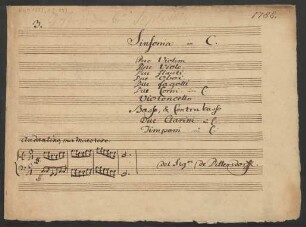 1786.
Sinfonia in C.
Due Violini
Due Viole
Due Flauti
Due Oboe
Due Fagotti
Due Corni in C
Violoncello
Basso, & Contra basso
Due Clarini in C
Timpani in C
Andantino, ma
Del Sigre: de Dittersdorf